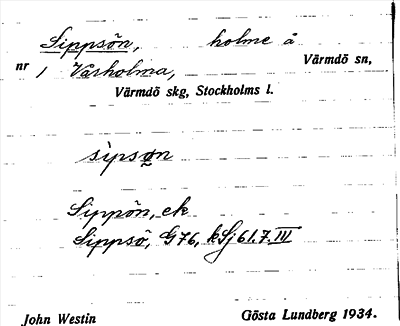 Sippsön, holme å
nr 1 Vasholma, Värmdö sn,
Värmdö skg, Stockholms l.
sìpsøn
Sippön, ek
Sippsö, G76, kSj 61.7.III
John Westin Gösta Lundberg 1934.